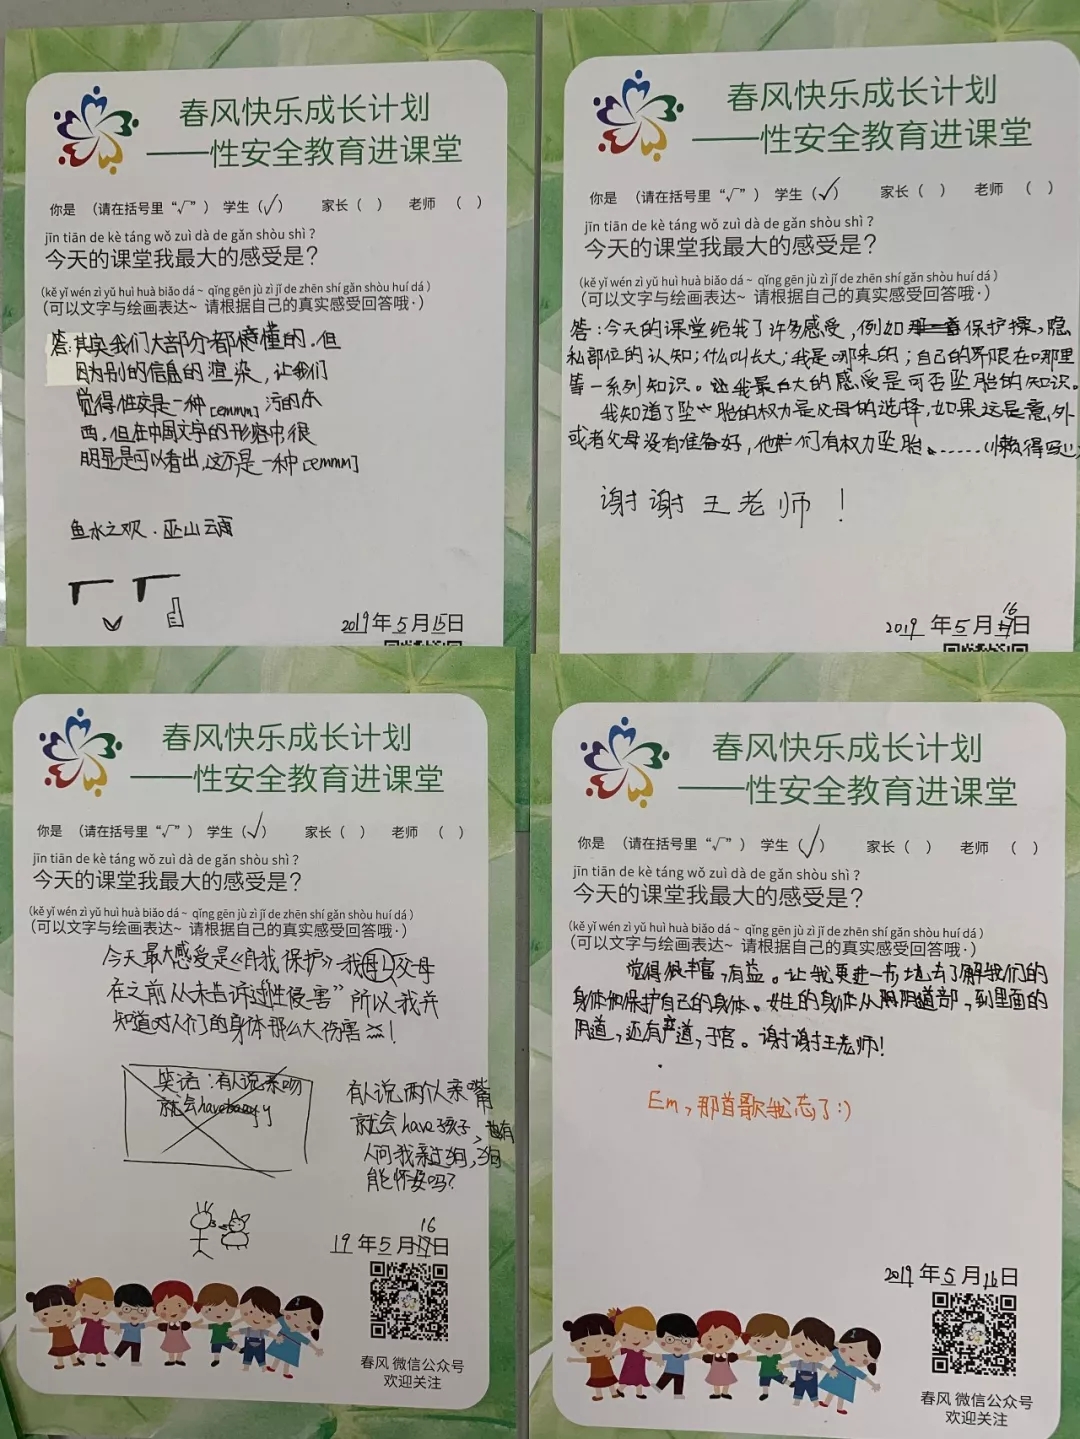 春风快乐成长计划
——性安全教育进课堂
你是 （请在括号里“√”） 学生（√） 家长（ ） 老师 （ ）
jīn tiān de kè táng wǒ zuì dà de gǎn shòu shì？
今天的课堂我最大的感受是？
(kě yǐ wén zì yǔ huì huà biǎo dá ~ qǐng gēn jù zì jǐ de zhēn shí gǎn shòu huí dá)
（可以文字与绘画表达~ 请根据自己的真实感受回答哦·）
答：其实我们大部分都懂的，但
因为别的信息的渲染，让我们
觉得性交是一种[emmm]污的东
西，但在中国文字的形容中很
明显是可以看出，这不是一种[emmm]
鱼水之欢．巫山云雨
2019年5月15日
春风快乐成长计划
——性安全教育进课堂
你是 （请在括号里“√”） 学生（√） 家长（ ） 老师 （ ）
jīn tiān de kè táng wǒ zuì dà de gǎn shòu shì？
今天的课堂我最大的感受是？
(kě yǐ wén zì yǔ huì huà biǎo dá ~ qǐng gēn jù zì jǐ de zhēn shí gǎn shòu huí dá)
（可以文字与绘画表达~ 请根据自己的真实感受回答哦·）
答：今天的课堂给我了许多感受，例如保护操，隐
私部位的认知；什么叫长大；我是哪来的；自己的界限在哪里
等一系列知识。让我最大的感受是可否坠胎的知识。
我知道了坠胎的权力是父母的选择，如果这是意外
或者父母没有准备好，他们有权力坠胎......(懒得写)
谢谢王老师！
2019年5月16日
春风快乐成长计划
——性安全教育进课堂
你是 （请在括号里“√”） 学生（√） 家长（ ） 老师 （ ）
jīn tiān de kè táng wǒ zuì dà de gǎn shòu shì？
今天的课堂我最大的感受是？
(kě yǐ wén zì yǔ huì huà biǎo dá ~ qǐng gēn jù zì jǐ de zhēn shí gǎn shòu huí dá)
（可以文字与绘画表达~ 请根据自己的真实感受回答哦·）
今天最大感受是《自我保护》我父母
在之前从未告诉过“性侵害”所以我并
知道对人们的身体那么大伤害！
笑话：有人说亲吻
就会have
有人说两个人亲嘴
就会have孩子，也有
人问我亲过狗，狗
能怀孕吗？
19年5月16日
春风 微信公众号
欢迎关注
春风快乐成长计划
——性安全教育进课堂
你是 （请在括号里“√”） 学生（√） 家长（ ） 老师 （ ）
jīn tiān de kè táng wǒ zuì dà de gǎn shòu shì？
今天的课堂我最大的感受是？
(kě yǐ wén zì yǔ huì huà biǎo dá ~ qǐng gēn jù zì jǐ de zhēn shí gǎn shòu huí dá)
（可以文字与绘画表达~ 请根据自己的真实感受回答哦·）
觉得很丰富，有益。让我更进一步地去了解我们的
身体和保护自己的身体。女生的身体从阴道部，到里面的
阴道，还有产道，子宫。谢谢王老师！
Em，那首歌我忘了:)
2019年5月16日
春风 微信公众号
欢迎关注